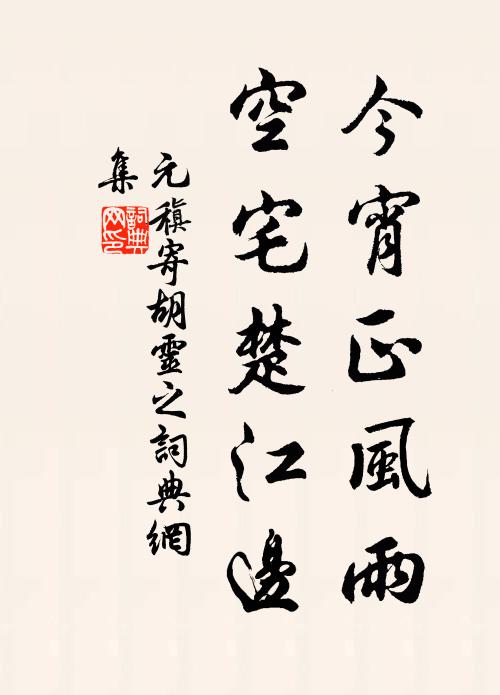 今宵正風雨
空宅楚江邊
元稹寄胡靈之詞典網
集
詞典
网印